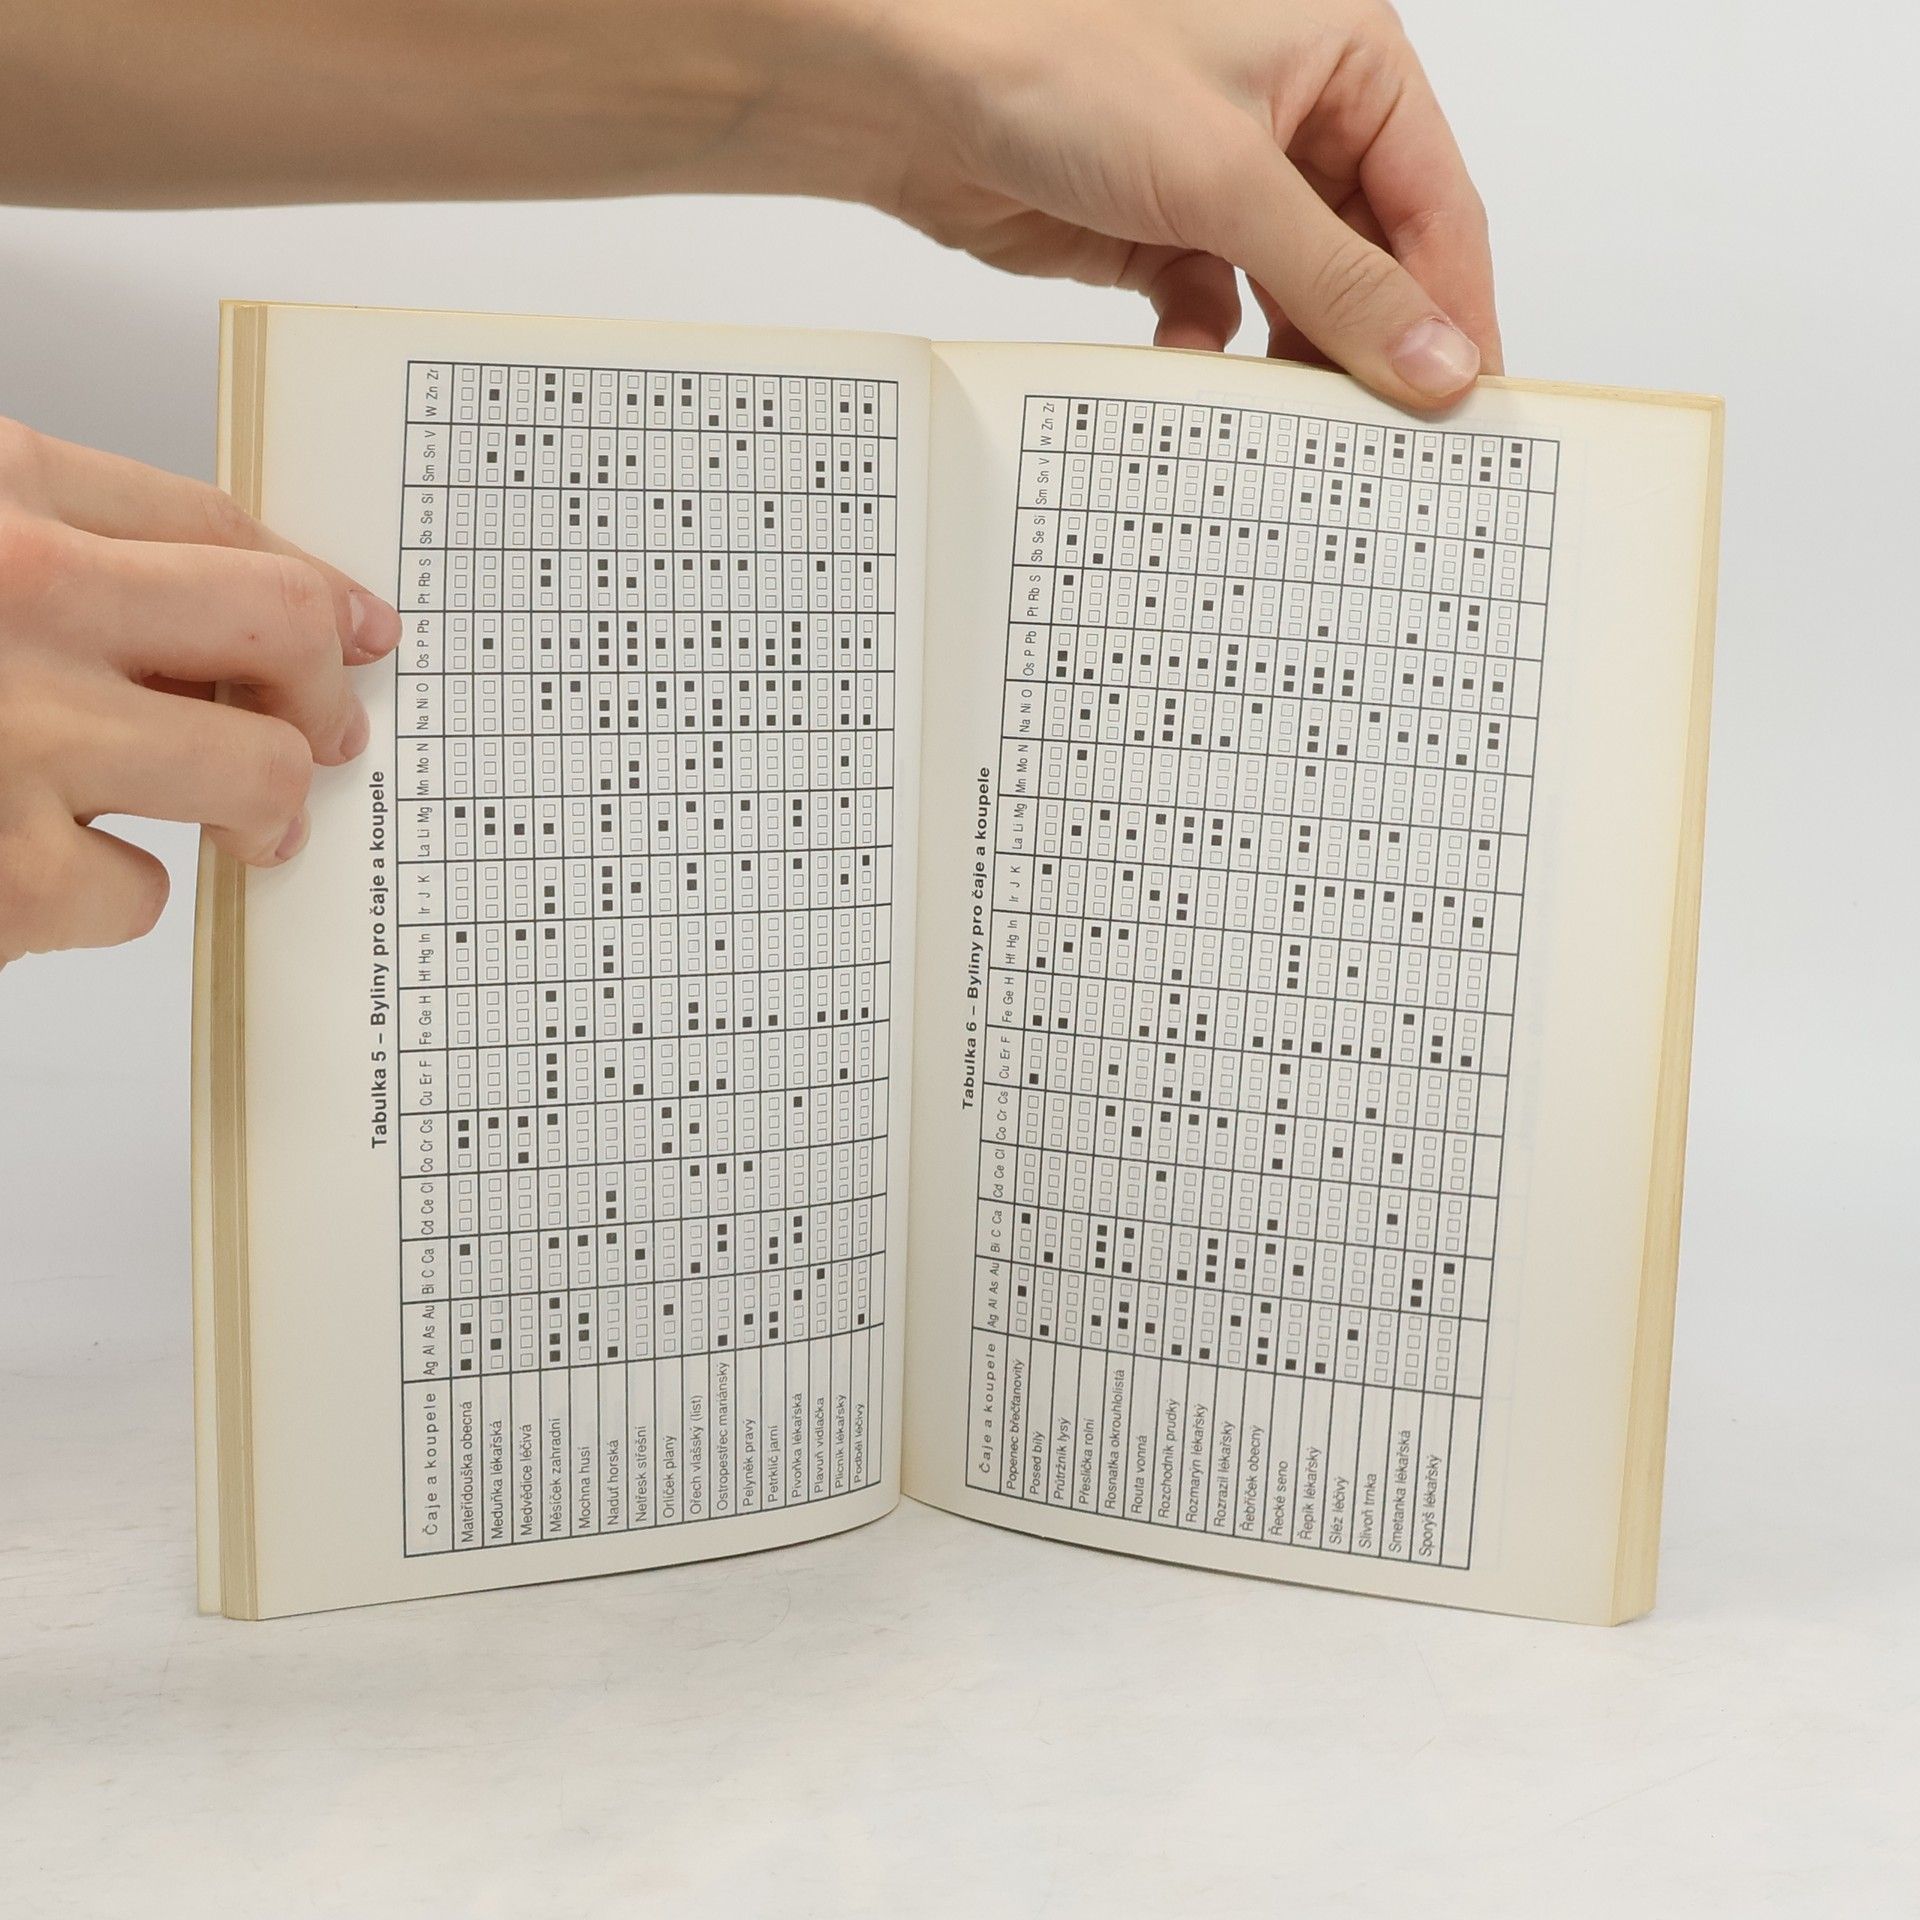 Tabulka 5 – Byliny pro čaje a koupele
Čaje a koupele Ag Al As Au Bi C Ca Cd Ce Cl Co Cr Cs Cu Er F Fe Ge H Hf Hg In Ir J K La Li Mg Mn Mo N Na Ni O Os P Pb Pt Rb S Sb Se Si Sm Sn V W Zn Zr
Mateřídouška obecná
Meduňka lékařská
Medvědice léčivá
Měsíček zahradní
Mochna husí
Naduť horská
Netřesk střešní
Orlíček planý
Ořech vlašský (list)
Ostropestřec mariánský
Pelyněk pravý
Petrklíč jarní
Pivoňka lékařská
Plavuň vidlačka
Plicník lékařský
Podběl léčivý
Tabulka 6 – Byliny pro čaje a koupele
Čaje a koupele Ag Al As Au Bi C Ca Cd Ce Cl Co Cr Cs Cu Er F Fe Ge H Hf Hg In Ir J K La Li Mg Mn Mo N Na Ni O Os P Pb Pt Rb S Sb Se Si Sm Sn V W Zn Zr
Popenec břečťanovitý
Posed bílý
Průtržník lysý
Přeslička rolní
Rosnatka okrouhlolistá
Routa vonná
Rozchodník prudký
Rozmarýn lékařský
Rozrazil lékařský
Řebříček obecný
Řecké seno
Řepík lékařský
Sléz léčivý
Slivoň trnka
Smetanka lékařská
Sporýš lékařský